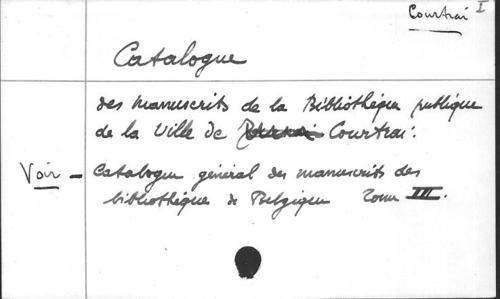 I
Courtrai
Catalogue
des manuscrits de la Bibliothèque publique
de la Ville de Courtrai.
Voir - Catalogue général des manuscrits des
bibliothèques de Belgique Tome III.